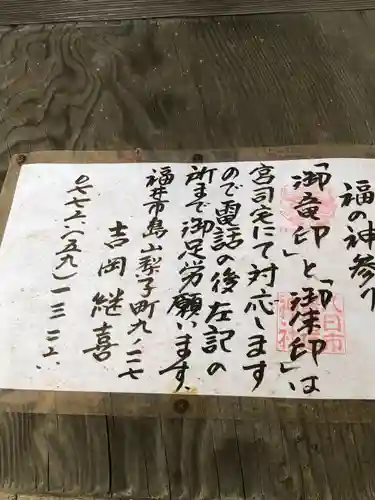 福の神参り
「御竜印」と「御朱印」は
宮司宅にて対応します
ので電話の後左記の
所まで御足労願います。
福井市鳥山梨子町九ノ二七
吉岡継喜
〇七七六(五九)一三二六